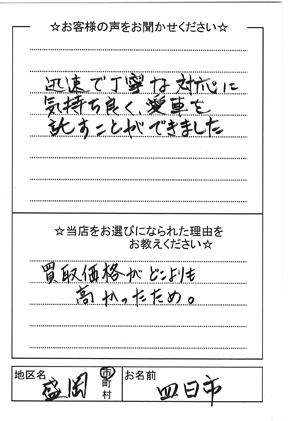 ☆お客様の声をお聞かせください☆
迅速で丁寧な対応に
気持ち良く、愛車を
託すことができました
☆当店をお選びになられた理由を
お教えください☆
買取価格がどこよりも
高かったため。
地区名 盛岡 市町村 お名前 四日市